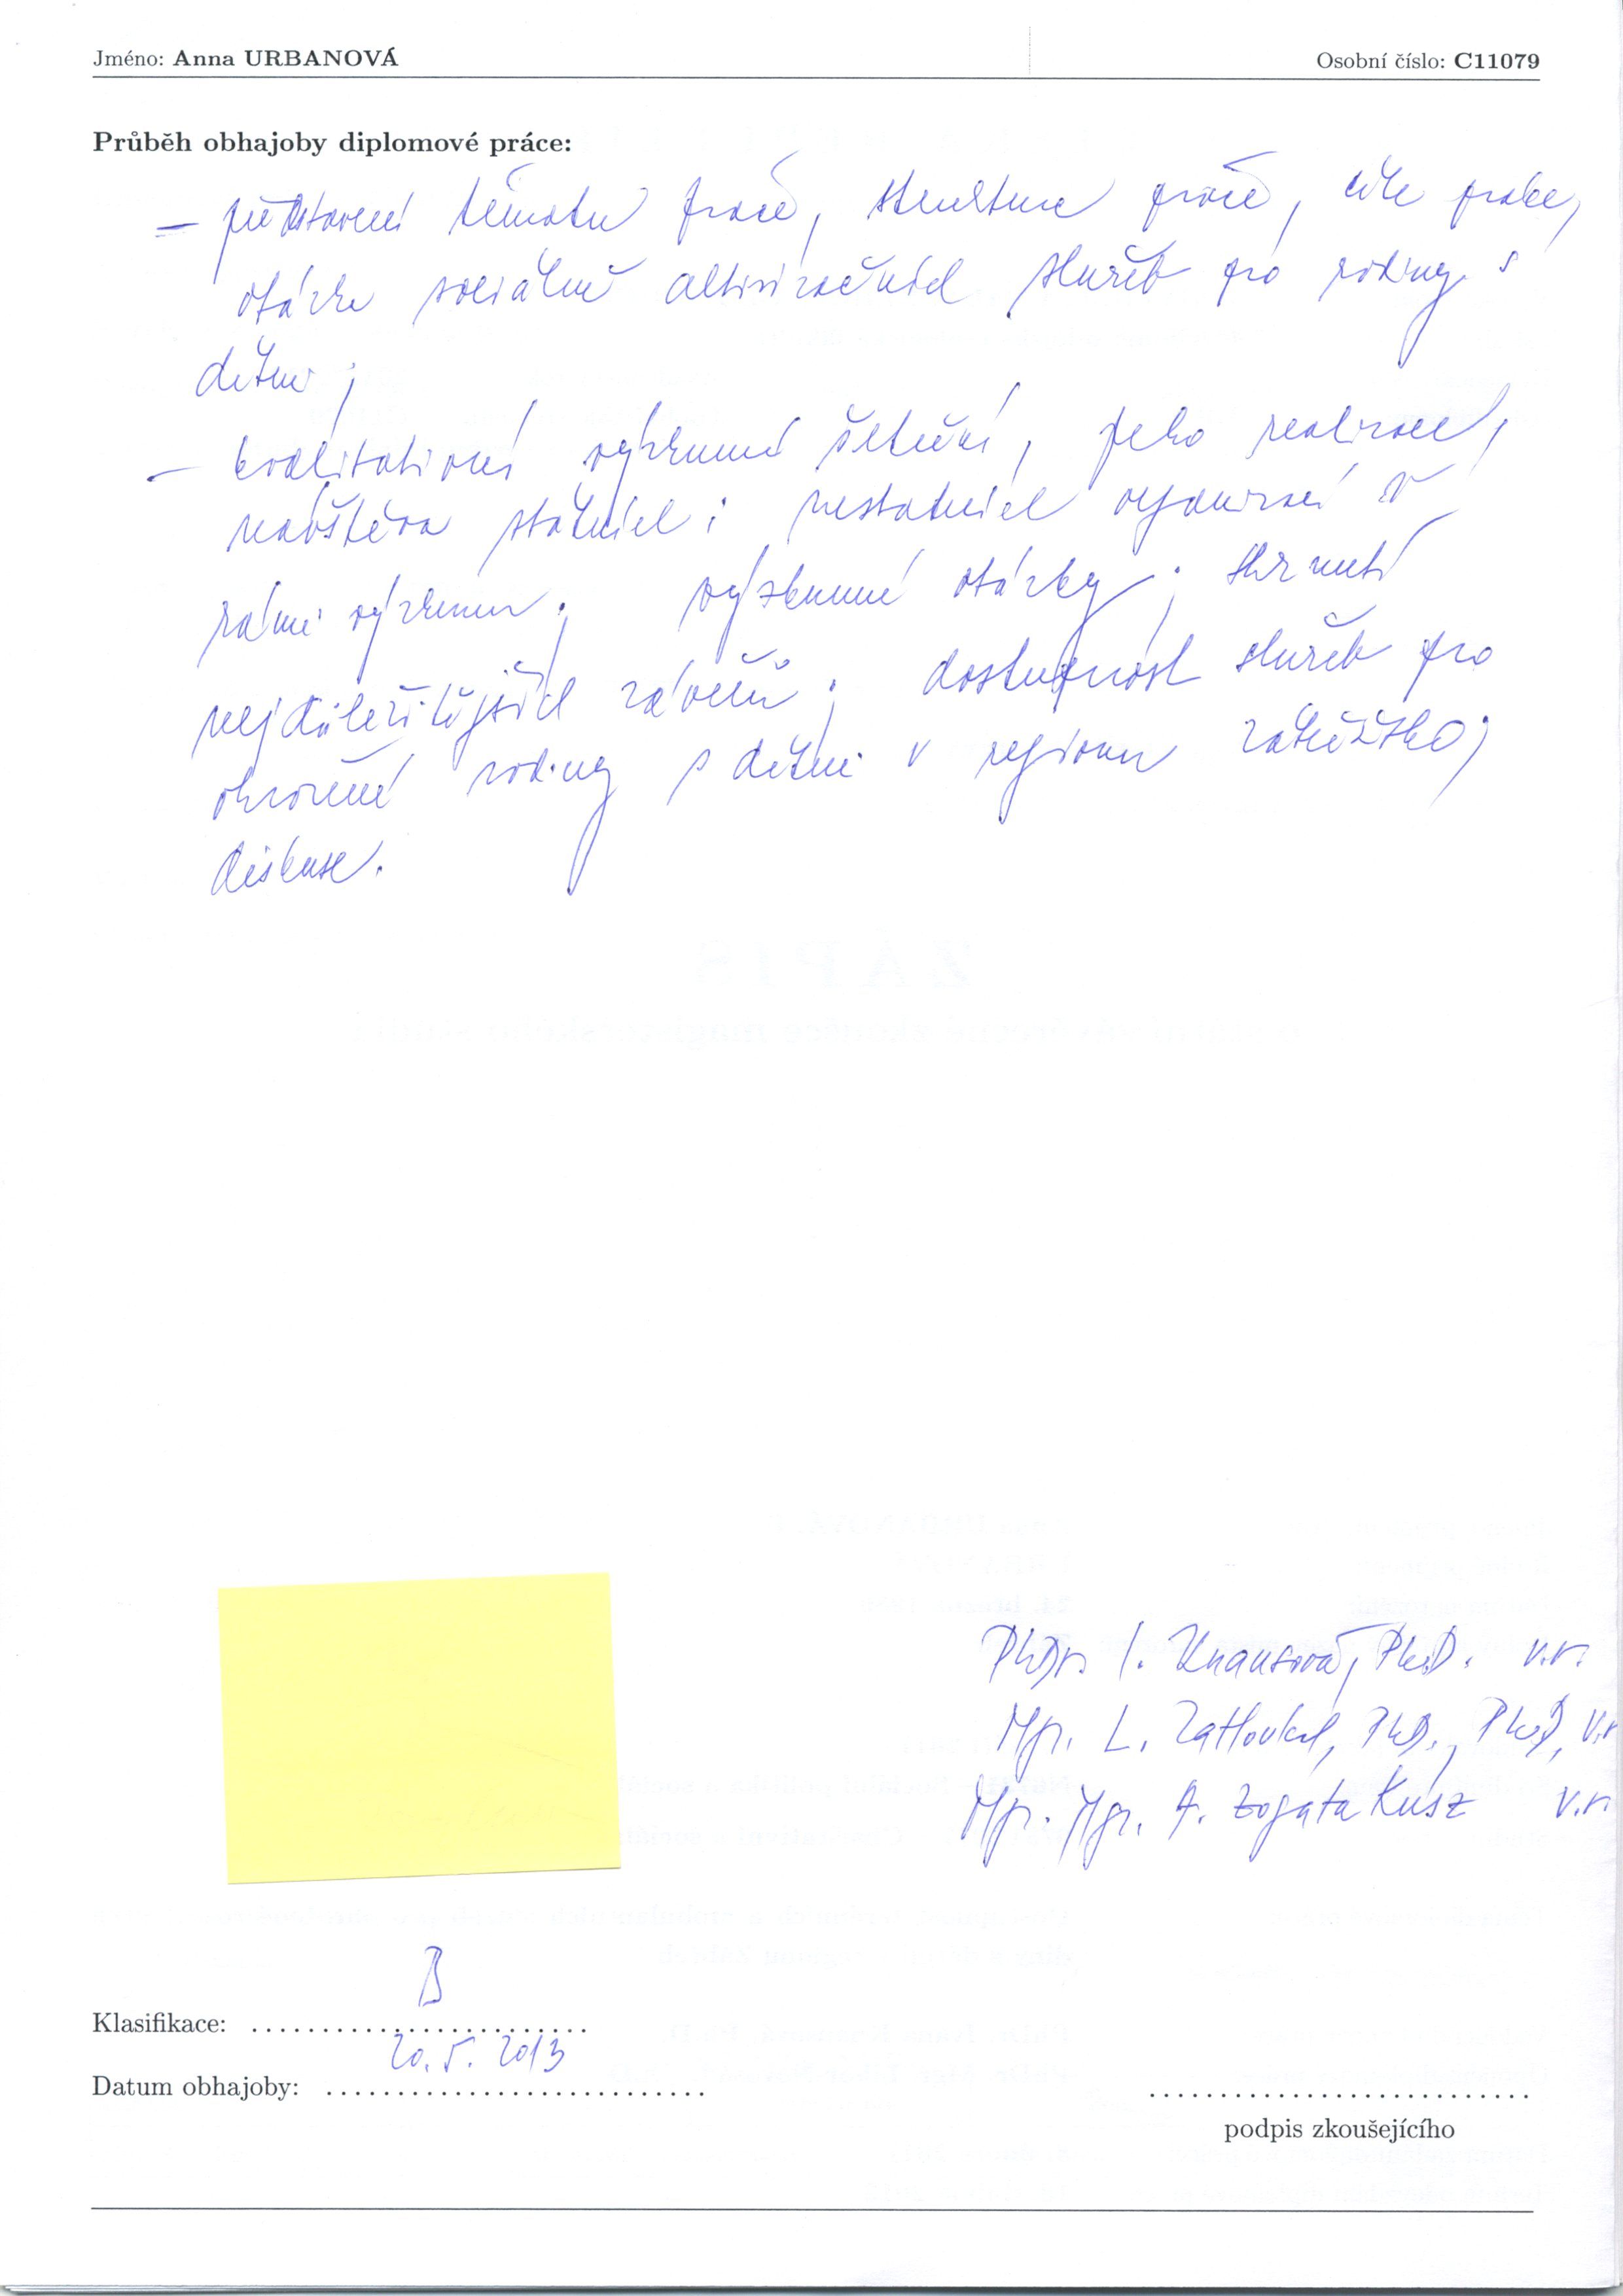 Jméno: Anna URBANOVÁ
Osobní číslo: C11079
Průběh obhajoby diplomové práce:
– představení tématu práce, struktura práce, cíle práce,
otázka sociálně aktivizačních služeb pro rodiny s
dětmi;
– kvalitativní výzkumné šetření, jeho realizace,
návštěva státních i nestátních organizací v
rámci výzkumu; výzkumné otázky; shrnutí
nejdůležitějších závěrů; dostupnost služeb pro
ohrožené rodiny s dětmi v regionu
diskuse.
PhDr. I. Knausová, Ph.D. v.r.
Mgr. L. Zatloukal, PhD., PhD, v.r
Mgr. Mgr. A. Zogata Kusz v.r.
B
Klasifikace:
20. 5. 2013
Datum obhajoby:
podpis zkoušejícího